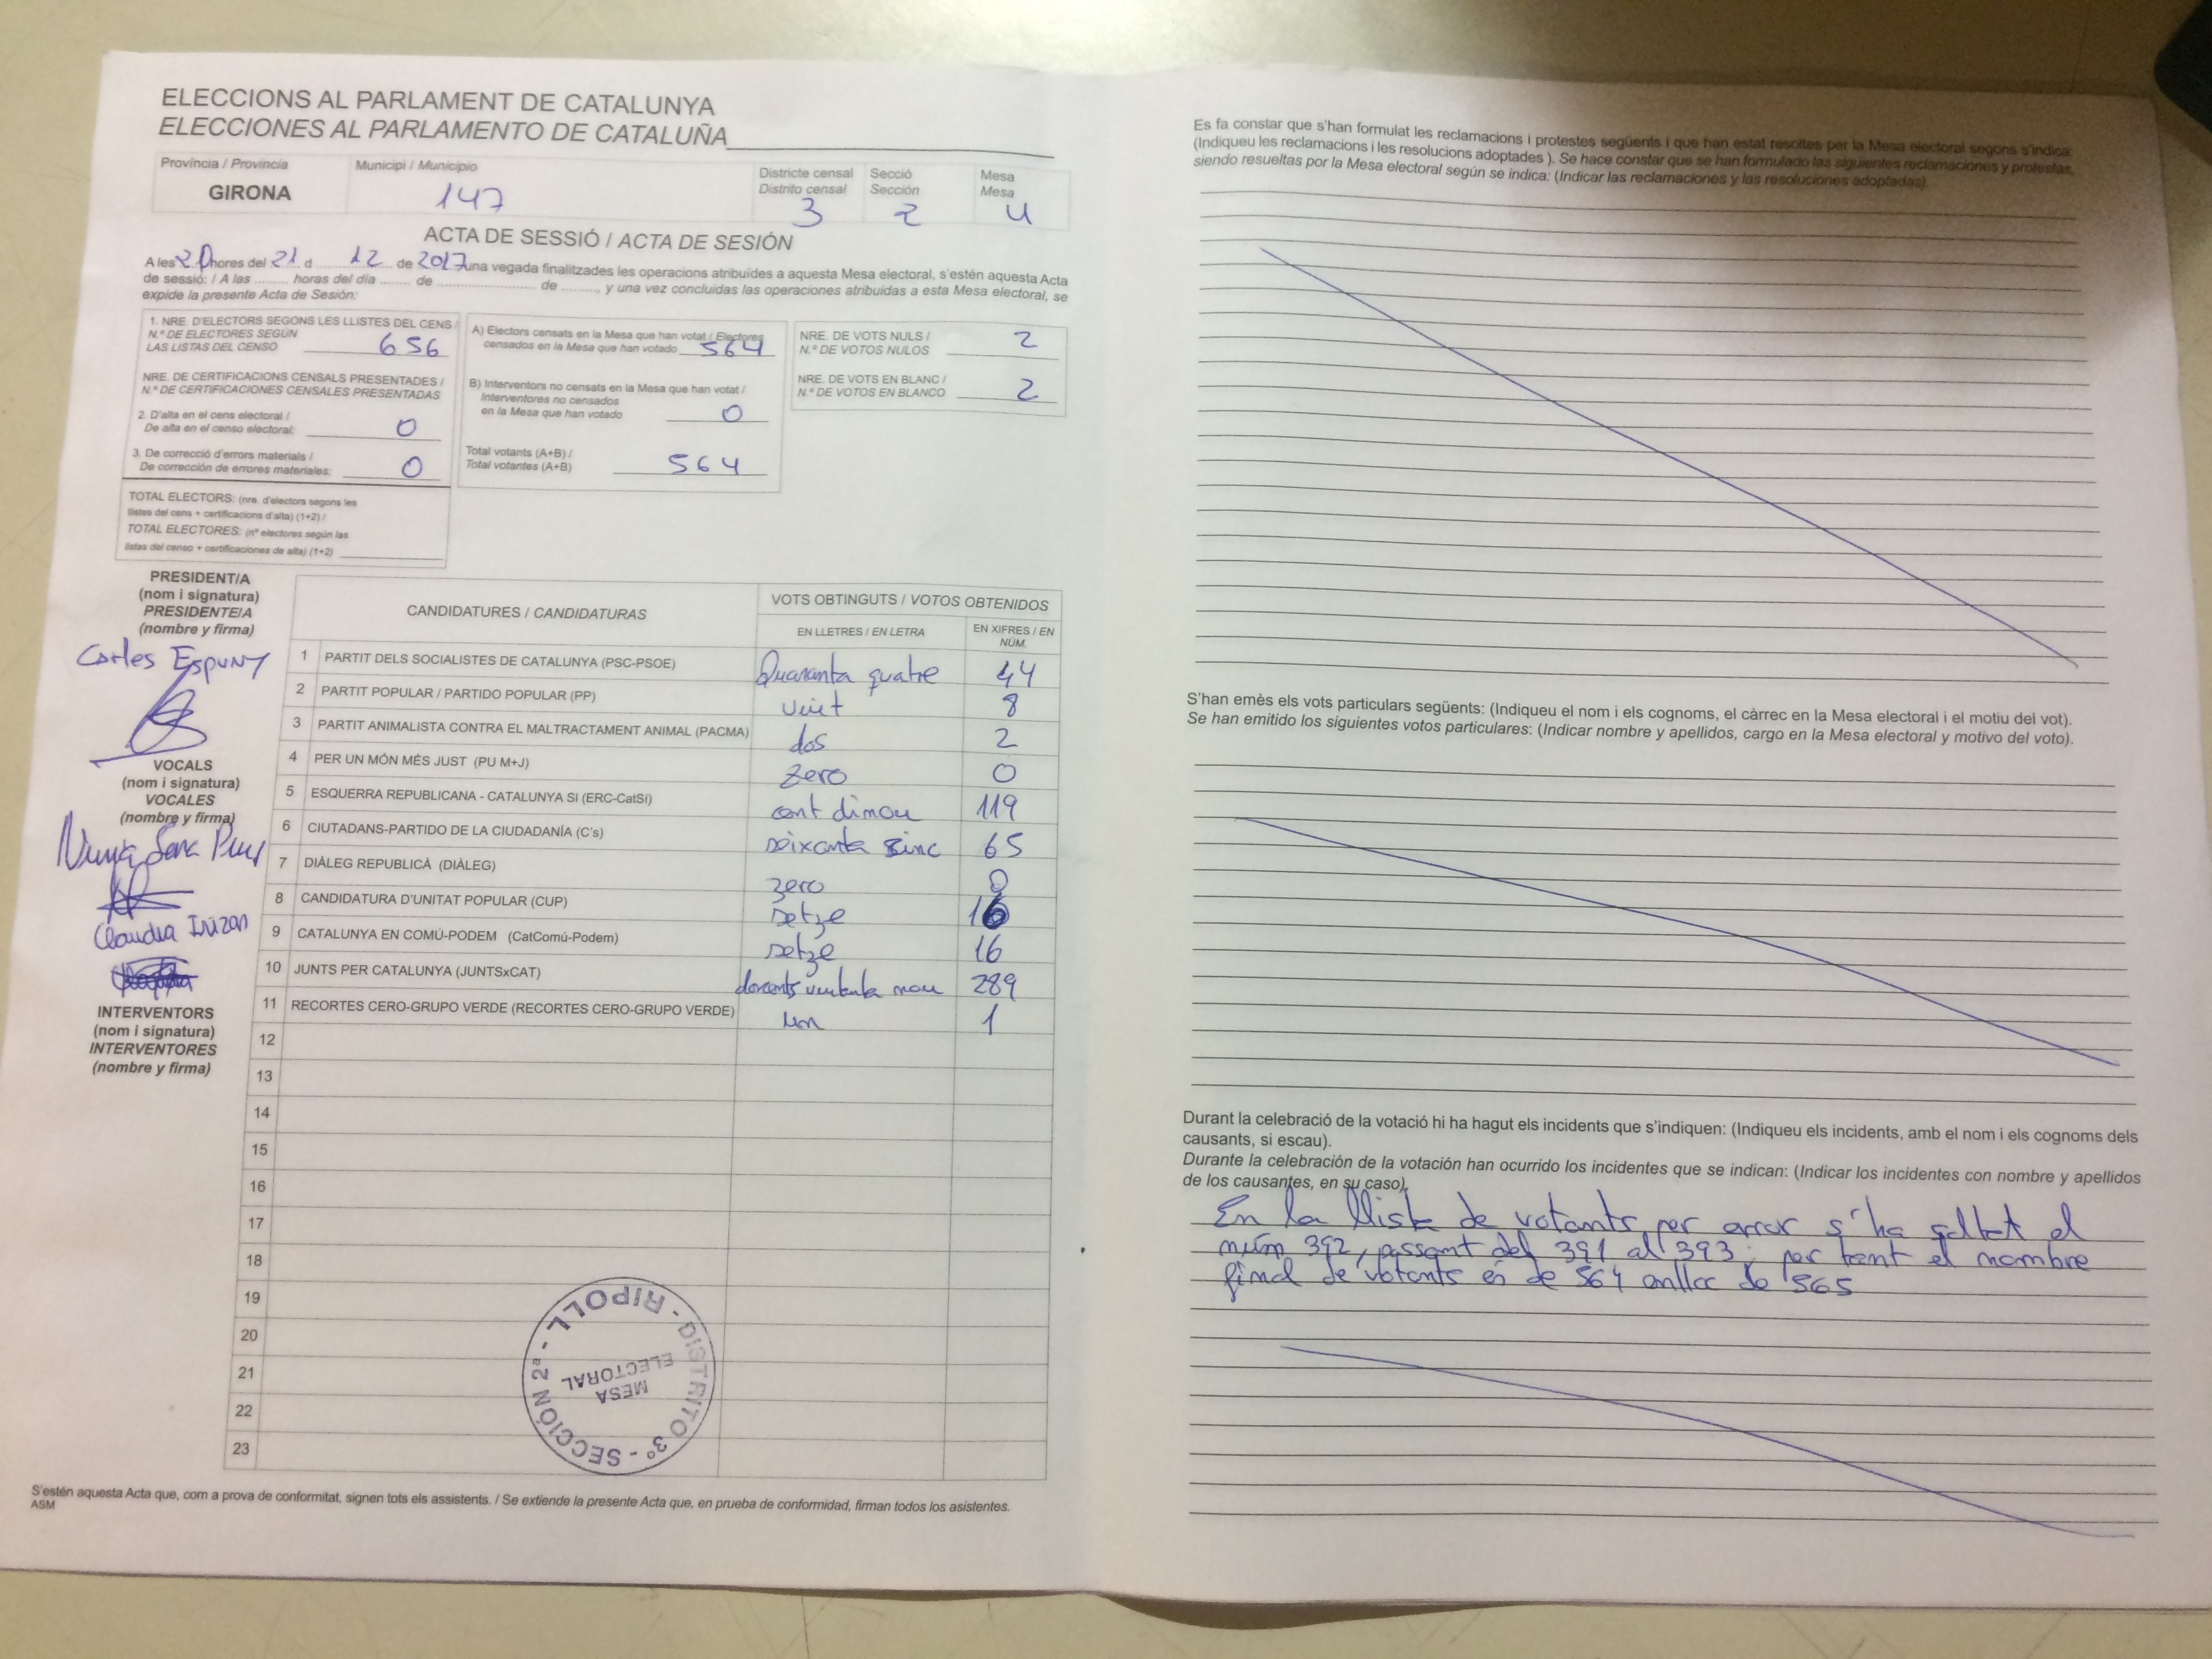 ELECCIONS AL PARLAMENT DE CATALUNYA
ELECCIONES AL PARLAMENTO DE CATALUÑA
Província / Provincia
GIRONA
Municipi / Municipio
147
Districte censal
Distrito censal
3
Secció
Sección
2
Mesa
Mesa
U
ACTA DE SESSIÓ / ACTA DE SESIÓN
A les 20 hores del 21 d 12 de 2017 una vegada finalitzades les operacions atribuïdes a aquesta Mesa electoral, s'estén aquesta Acta
de sessió: / A las ......... horas del día ........ de .......................... de ........., y una vez concluidas las operaciones atribuidas a esta Mesa electoral, se
expide la presente Acta de Sesión:
1. NRE. D'ELECTORS SEGONS LES LLISTES DEL CENS /
N.º DE ELECTORES SEGÚN
LAS LISTAS DEL CENSO 656
NRE. DE CERTIFICACIONS CENSALS PRESENTADES /
N.º DE CERTIFICACIONES CENSALES PRESENTADAS
2. D'alta en el cens electoral /
De alta en el censo electoral: 0
3. De correcció d'errors materials /
De corrección de errores materiales: 0
TOTAL ELECTORS: (nre. d'electors segons les
llistes del cens + certificacions d'alta) (1+2) /
TOTAL ELECTORES: (nº electores según las
listas del censo + certificaciones de alta) (1+2)
A) Electors censats en la Mesa que han votat / Electores
censados en la Mesa que han votado 564
B) Interventors no censats en la Mesa que han votat /
Interventores no censados
en la Mesa que han votado 0
Total votants (A+B) /
Total votantes (A+B) 564
NRE. DE VOTS NULS /
N.º DE VOTOS NULOS 2
NRE. DE VOTS EN BLANC /
N.º DE VOTOS EN BLANCO 2
PRESIDENT/A
(nom i signatura)
PRESIDENTE/A
(nombre y firma)
Carles Espuny
VOCALS
(nom i signatura)
VOCALES
(nombre y firma)
Claudia
INTERVENTORS
(nom i signatura)
INTERVENTORES
(nombre y firma)
CANDIDATURES / CANDIDATURAS
VOTS OBTINGUTS / VOTOS OBTENIDOS
EN LLETRES / EN LETRA
EN XIFRES / EN
NÚM.
1 PARTIT DELS SOCIALISTES DE CATALUNYA (PSC-PSOE) Quaranta quatre 44
2 PARTIT POPULAR / PARTIDO POPULAR (PP) vuit 8
3 PARTIT ANIMALISTA CONTRA EL MALTRACTAMENT ANIMAL (PACMA) dos 2
4 PER UN MÓN MÉS JUST (PU M+J) zero 0
5 ESQUERRA REPUBLICANA - CATALUNYA SI (ERC-CatSí) cent dinou 119
6 CIUTADANS-PARTIDO DE LA CIUDADANÍA (C's) seixanta sinc 65
7 DIÀLEG REPUBLICÀ (DIÀLEG) zero 0
8 CANDIDATURA D'UNITAT POPULAR (CUP) setze 16
9 CATALUNYA EN COMÚ-PODEM (CatComú-Podem) setze 16
10 JUNTS PER CATALUNYA (JUNTSxCAT) nou 289
11 RECORTES CERO-GRUPO VERDE (RECORTES CERO-GRUPO VERDE) un 1
12
13
14
15
16
17
18
19
20
21
22
23
RIPOLL - DISTRITO 3º - SECCIÓN 2ª -
MESA
ELECTORAL
S'estén aquesta Acta que, com a prova de conformitat, signen tots els assistents. / Se extiende la presente Acta que, en prueba de conformidad, firman todos los asistentes.
ASM
Es fa constar que s'han formulat les reclamacions i protestes següents i que han estat resoltes per la Mesa electoral segons s'indica:
(Indiqueu les reclamacions i les resolucions adoptades ). Se hace constar que se han formulado las siguientes reclamaciones y protestas,
siendo resueltas por la Mesa electoral según se indica: (Indicar las reclamaciones y las resoluciones adoptadas).
S'han emès els vots particulars següents: (Indiqueu el nom i els cognoms, el càrrec en la Mesa electoral i el motiu del vot).
Se han emitido los siguientes votos particulares: (Indicar nombre y apellidos, cargo en la Mesa electoral y motivo del voto).
Durant la celebració de la votació hi ha hagut els incidents que s'indiquen: (Indiqueu els incidents, amb el nom i els cognoms dels
causants, si escau).
Durante la celebración de la votación han ocurrido los incidentes que se indican: (Indicar los incidentes con nombre y apellidos
de los causantes, en su caso).
En la llista de votants per error s'ha saltat el
núm 392, passant del 391 al 393; per tant el nombre
final de votants és de 564 enlloc de 565